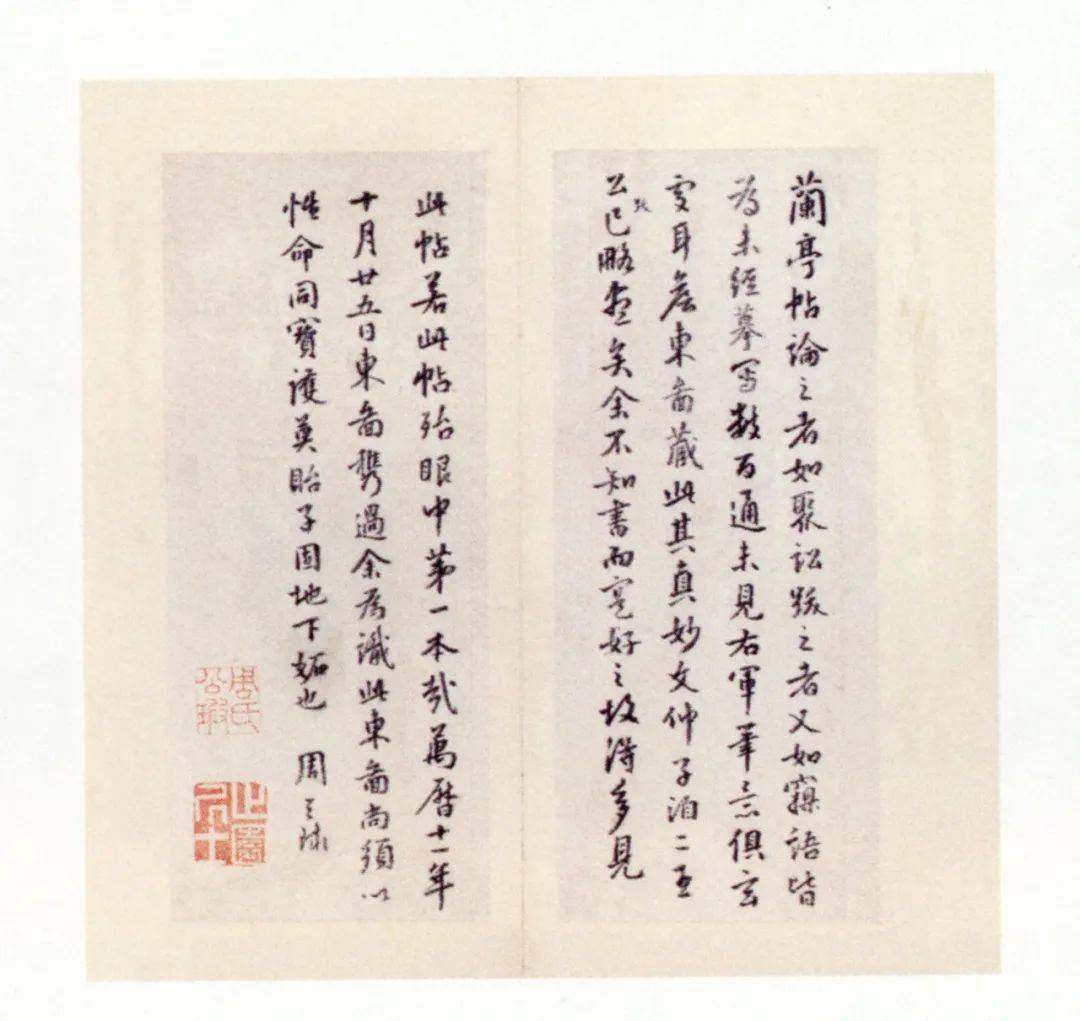 蘭亭帖論之者如聚訟跋之者又如寱語皆
為未經摹寫數百通未見右軍筆意俱玄
虛耳詹東啚藏此其真妙文仲子洎二王
公跋已略盡矣余不知書而寔好之故得多見
此帖若此帖殆眼中第一本哉萬曆十一年
十月廿五日東啚攜過余為識此東啚尚須以
性命同寶護莫貽子固地下妬也 周天球
周氏公瑕
止園居士